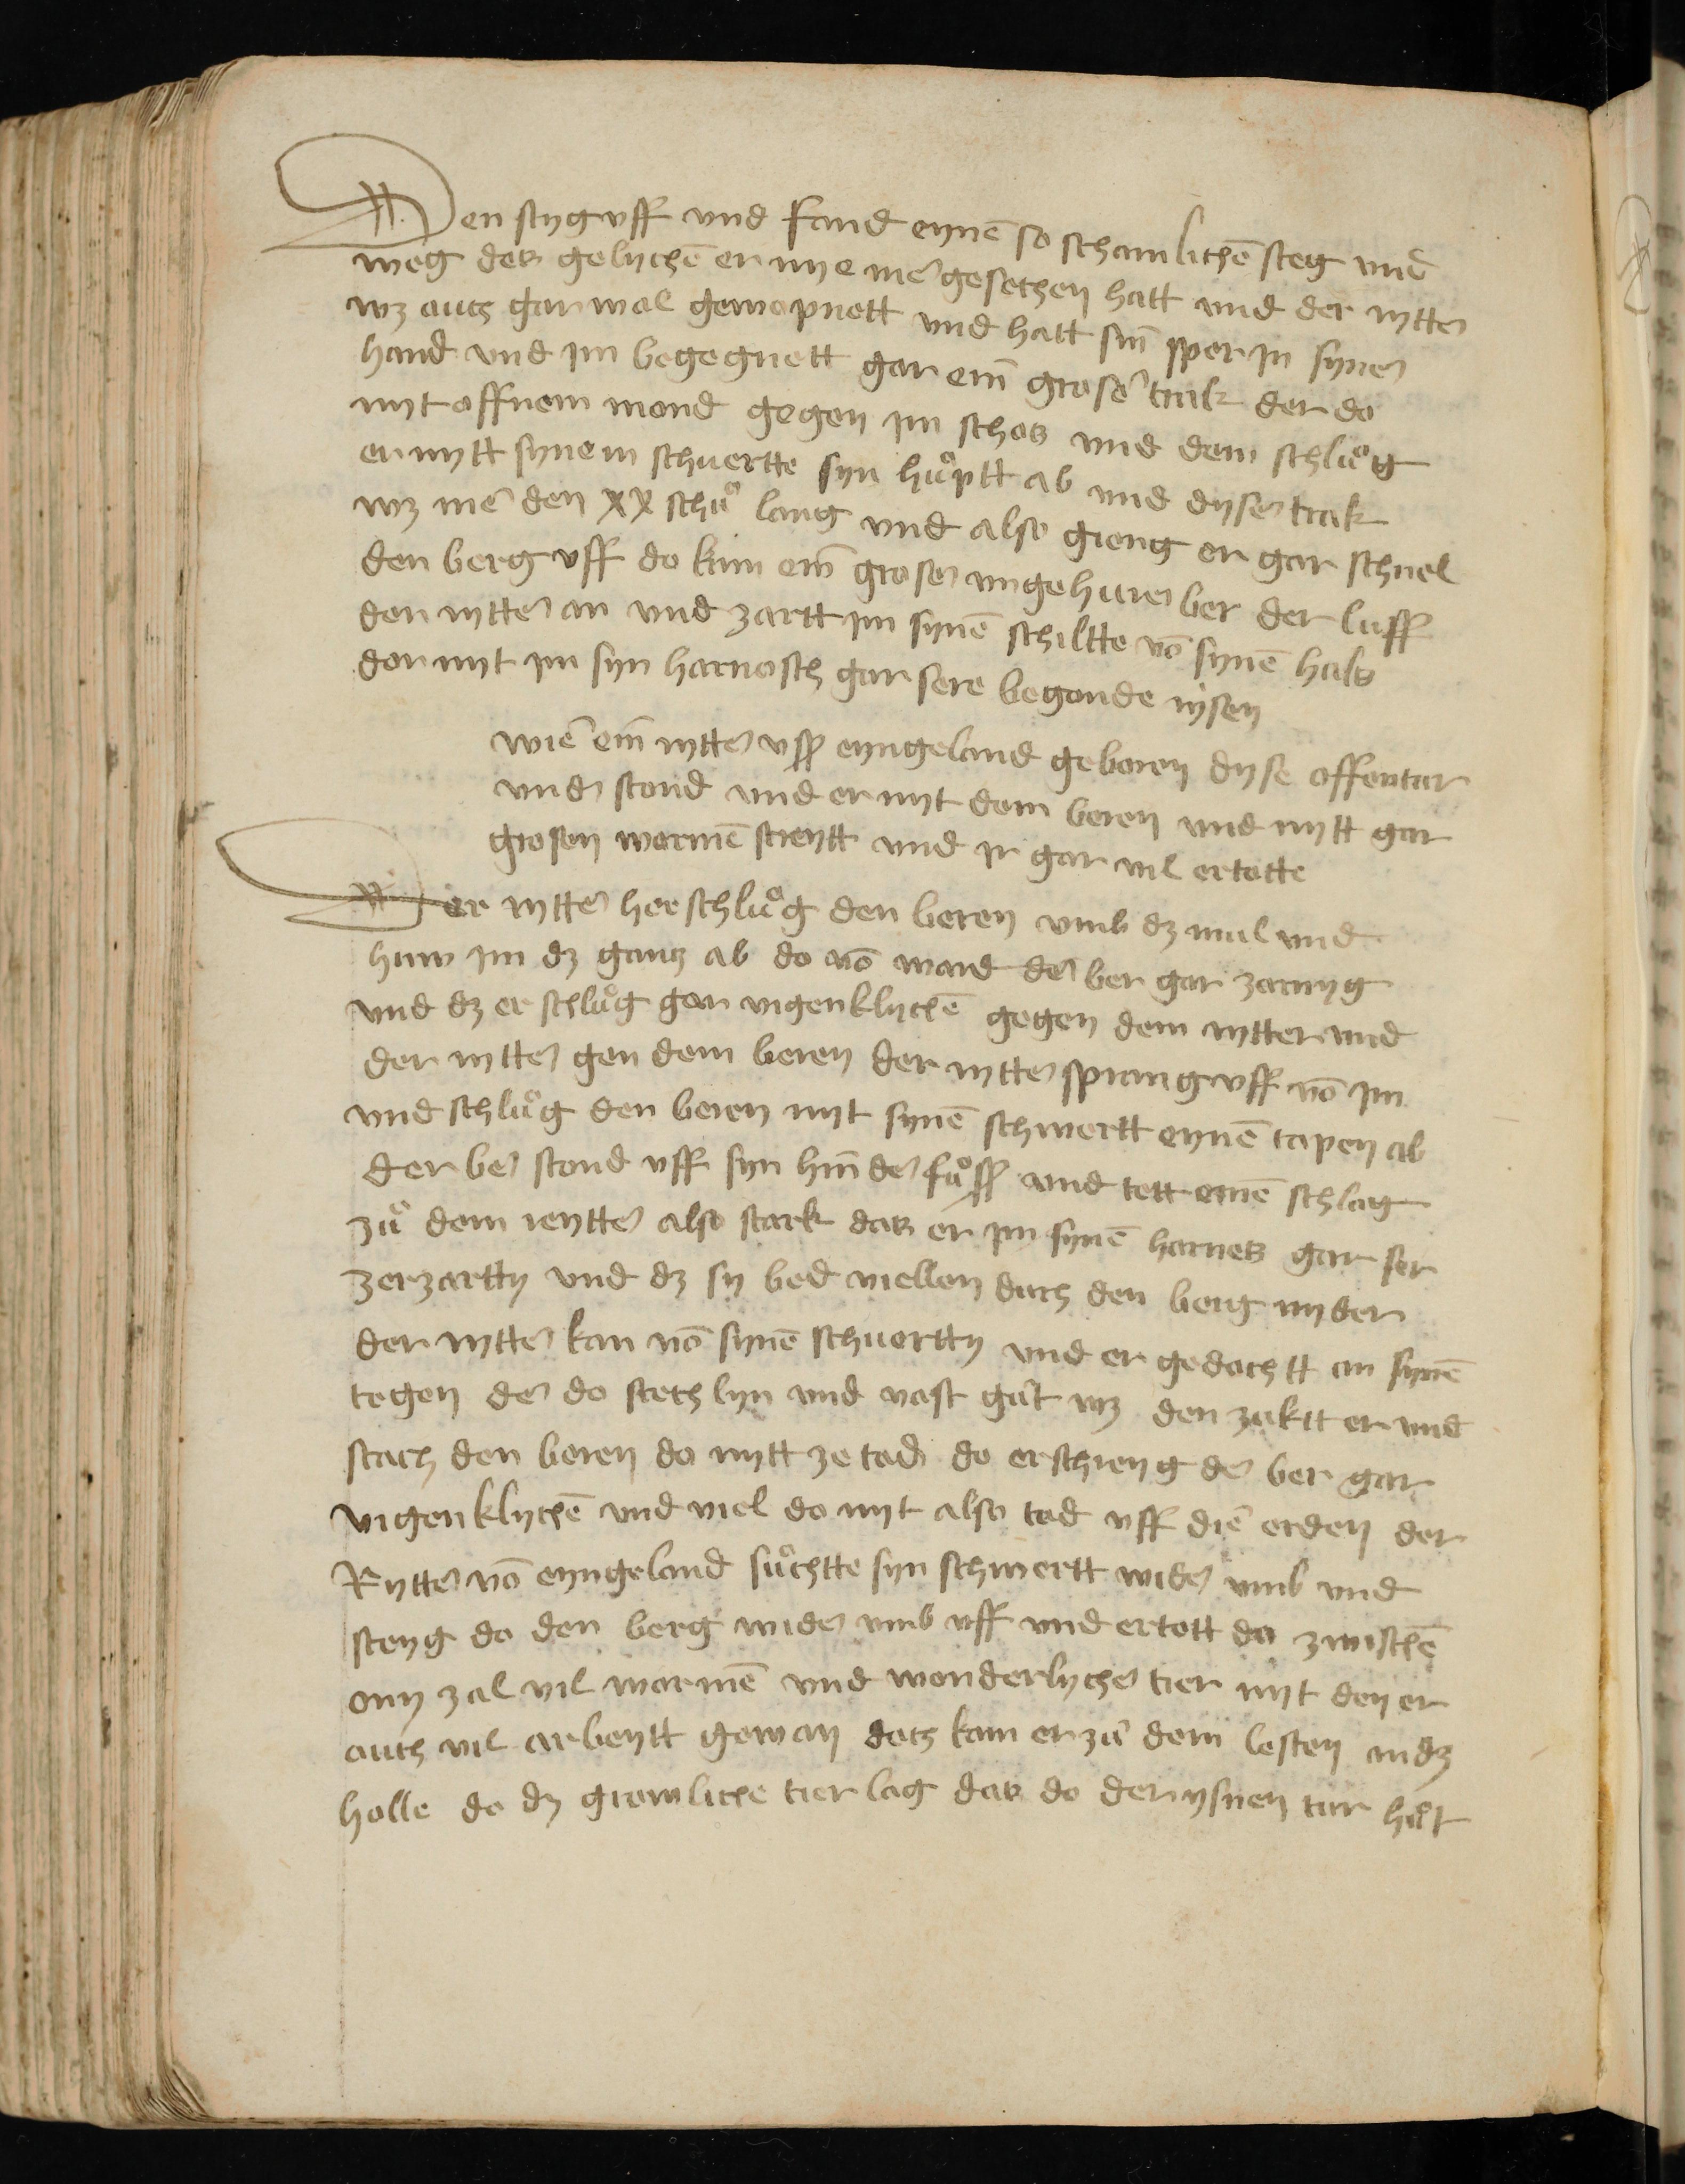 Den styg vff vnd fand eynē so schamlichē steg vnd
weg des gelychē er nye me gesechen hatt vnd der rytter
wz auch gar wol gewapnett vnd hatt sin sper jn syner
hand vnd jm begegnett gar ein groser trak der do
myt offnem mond gegen jm schos vnd dem schlůg
er mytt synem schuertte syn hůptt ab vnd dyser trak
wz me den xx schů lang vnd also gieng er gar schnel
den berg vff do kum ein groser vngehurer ber der luff
den rytter an vnd zartt jm synē schiltte vō synē hals
dor myt jm syn harnasch gar sere begonde rysen
wie ein rytter vss eyngeland geboren dyse offentur
vnder stond vnd er myt dem beren vnd mytt gar
grosen wormē streytt vnd jr gar vil ertotte
Der rytter her schlůg den beren vmb dz mul vnd
huw jm dz gantz ab do vō ward der ber gar zornyg
vnd dz er schlůg gar vigenklychē gegen dem rytter vnd
der rytter gen dem beren der rytter sprang vff vō jm
vnd schlůg den beren myt synē schwertt eynē tapen ab
der ber stond vff syn hinder fůss vnd tett einē schlag
zů dem reytter also stark das er jm synē harnes gar ser
zerzartty vnd dz sy bed viellen durch den berg nyder
der rytter kan vō synē schuertty vnd er gedachtt an synē
tegen der do stechlyn vnd vast gůt wz den zuktt er vnd
stach den beren do mytt ze tod do erschreyg der ber gar
vigenklychē vnd viel do myt also tod vff die erden der
Rytter vō eyngeland sůchtte syn schwertt wider vmb vnd
steyg do den berg wider vmb vff vnd ertott do zwischē
ony zal vil wormē vnd wonderlycher tier myt den er
auch vil arbeytt gewan doch kam er zů dem lesten an dz
holle do dz growliche tier lag das do der ysnen tur hůt